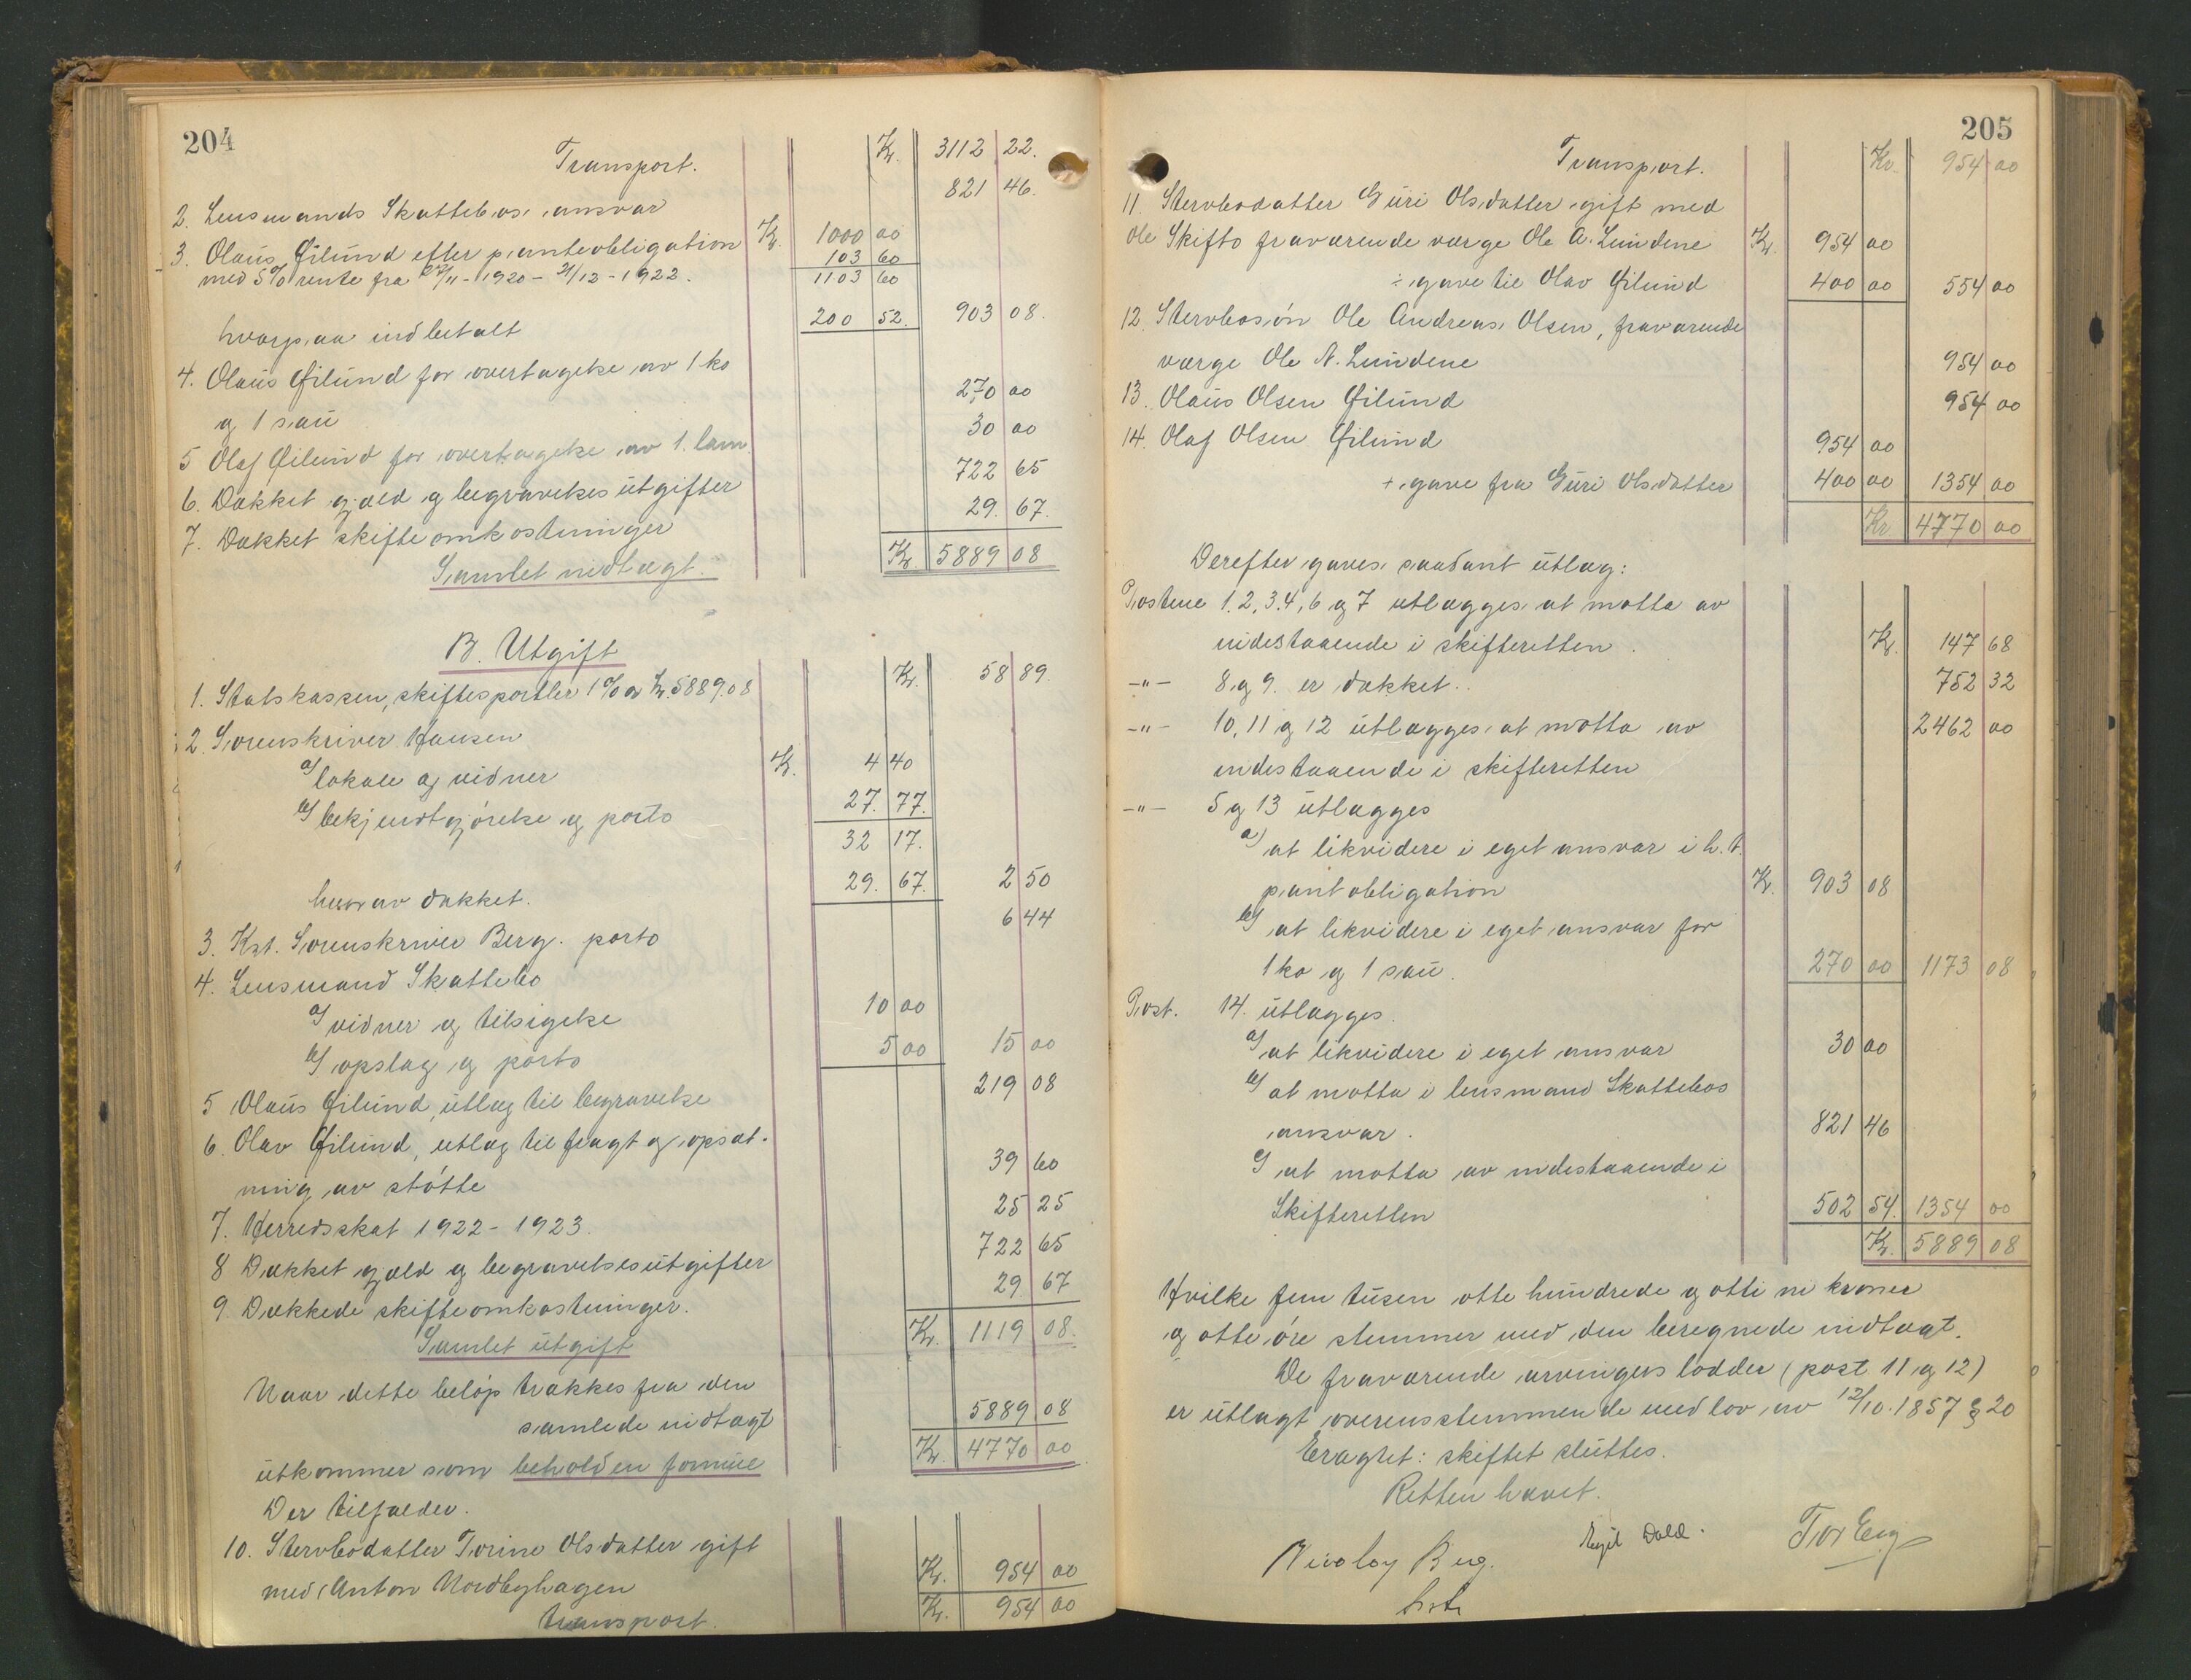 204
Transport. Kr. 3112 22.
2. Lensmands Skattebos ansvar 821 46.
3. Olaus Øilund efter panteobligation Kr. 1000 00
med 5% rente fra 27/11-1920 - 21/12-1922. 103 60
1103 60
hvorpaa indbetalt 200 52. 903 08.
4. Olaus Øilund for overtagelse av 1 ko
og 1 sau 270 00
5 Olaf Øilund for overtagelse av 1. lam 30 00
6. Dækket gjæld og begravelses utgifter 722 65
7. Dækket skifteomkostninger 29. 67.
Samlet indtægt. Kr. 5889 08
B. Utgift
1. Statskassen, skiftesportler 1% av Kr. 5889.08 Kr. 58 89.
2. Sorenskriver Hansen
a/ lokale og vidner Kr. 4 40
b/ bekjendtgjørelse og porto 27. 77.
32 17.
hvorav dækket. 29. 67. 2 50
3. Kst. Sorenskriver Berg. porto 6 44
4. Lensmand Skattebo
a/ vidner og tilsigelse 10 00
b/ opslag og porto 5 00 15 00
5 Olaus Øilund, utlæg til begravelse 219 08
6. Olav Øilund, utlæg til fragt og opsæt-
ning av støtte 39 60
7. Herredsskat 1922-1923. 25 25
8 Dækket gjæld og begravelsesutgifter 722 65
9. Dækkede skifteomkostninger. 29 67
Samlet utgift Kr. 1119 08.
Naar dette beløp trækkes fra den
samlede indtægt 5889 08
utkommer som beholden formue Kr. 4770 00
Der tilfalder.
10. Stervbodatter Torine Olsdatter gift
med Anton Nordbyhagen Kr. 954 00
transport. Kr. 954 00
205
Transport. Kr. 954 00
11. Stervbodatter Guri Olsdatter gift med
Ole Skifto fraværende værge Ole A. Lundene Kr. 954 00
÷ gave til Olav Øilund 400 00 554 00
12. Stervbosøn Ole Andreas Olsen, fraværende
værge Ole A. Lundene 954 00
13. Olaus Olsen Øilund 954 00
14. Olaf Olsen Øilund 954 00
+ gave fra Guri Olsdatter 400 00 1354 00
Kr 4770 00
Derefter gaves saadant utlæg:
Postene 1. 2, 3. 4, 6 og 7 utlægges at motta av
indestaaende i skifteretten. Kr. 147 68
-"- 8 og 9. er dækket. 752 32
-"- 10, 11 og 12 utlægges at motta av 2462 00
indestaaende i skifteretten
-"- 5 og 13 utlægges
a/ at likvidere i eget ansvar i h. t.
pantobligation Kr. 903 08
b/ at likvidere i eget ansvar for
1 ko og 1 sau. 270 00 1173 08
Post. 14. utlægges
a/ at likvidere i eget ansvar 30 00
b/ at motta i lensmand Skattebos
ansvar. 821 46
c/ at motta av indestaaende i
Skifteretten 502 54. 1354 00
Kr. 5889 08
Hvilke fem tusen otte hundrede og otti ni kroner
og otte øre stemmer med den beregnede indtægt.
De fraværende arvingers lodder (post 11 og 12)
er utlagt overensstemmende med lov av 12/10.1857 § 20
Eragtet: skiftet sluttes.
Retten hævet.
Nicolay Berg. Egil Dale. Tor Eng